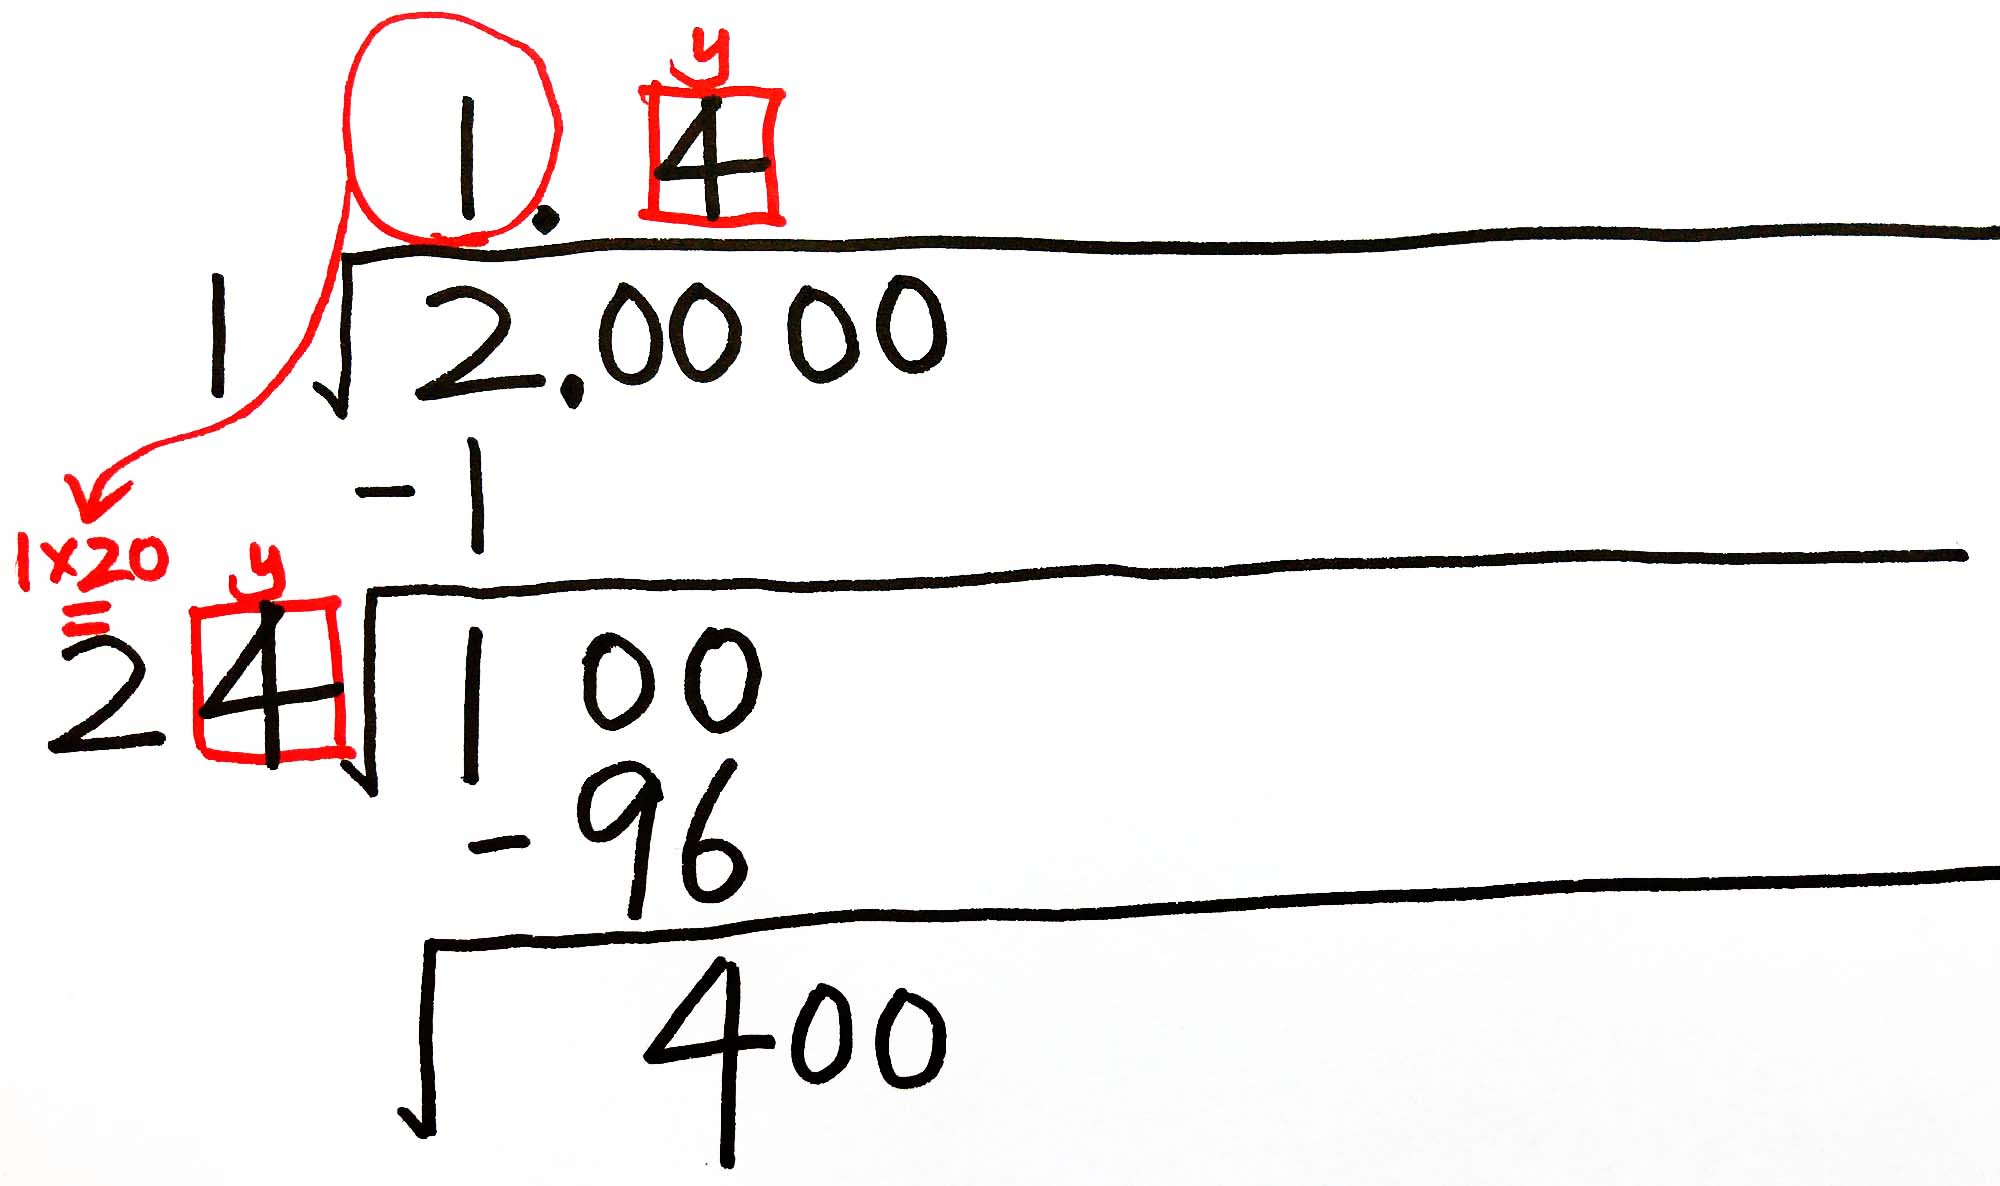 y
1. 4
1 √2.00 00
-1
1×20
=
y
2 4 √1 00
-96
√400